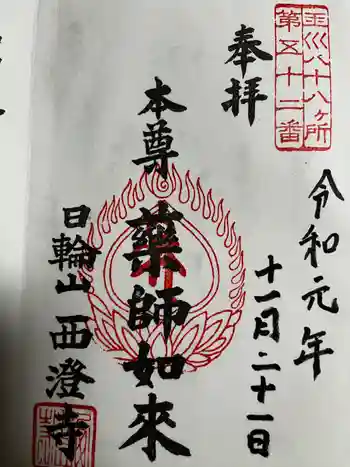 玉川八十八ヶ所
第五十二番
奉拝
令和元年
十一月二十一日
本尊
藥師如來
日輪山
西澄寺